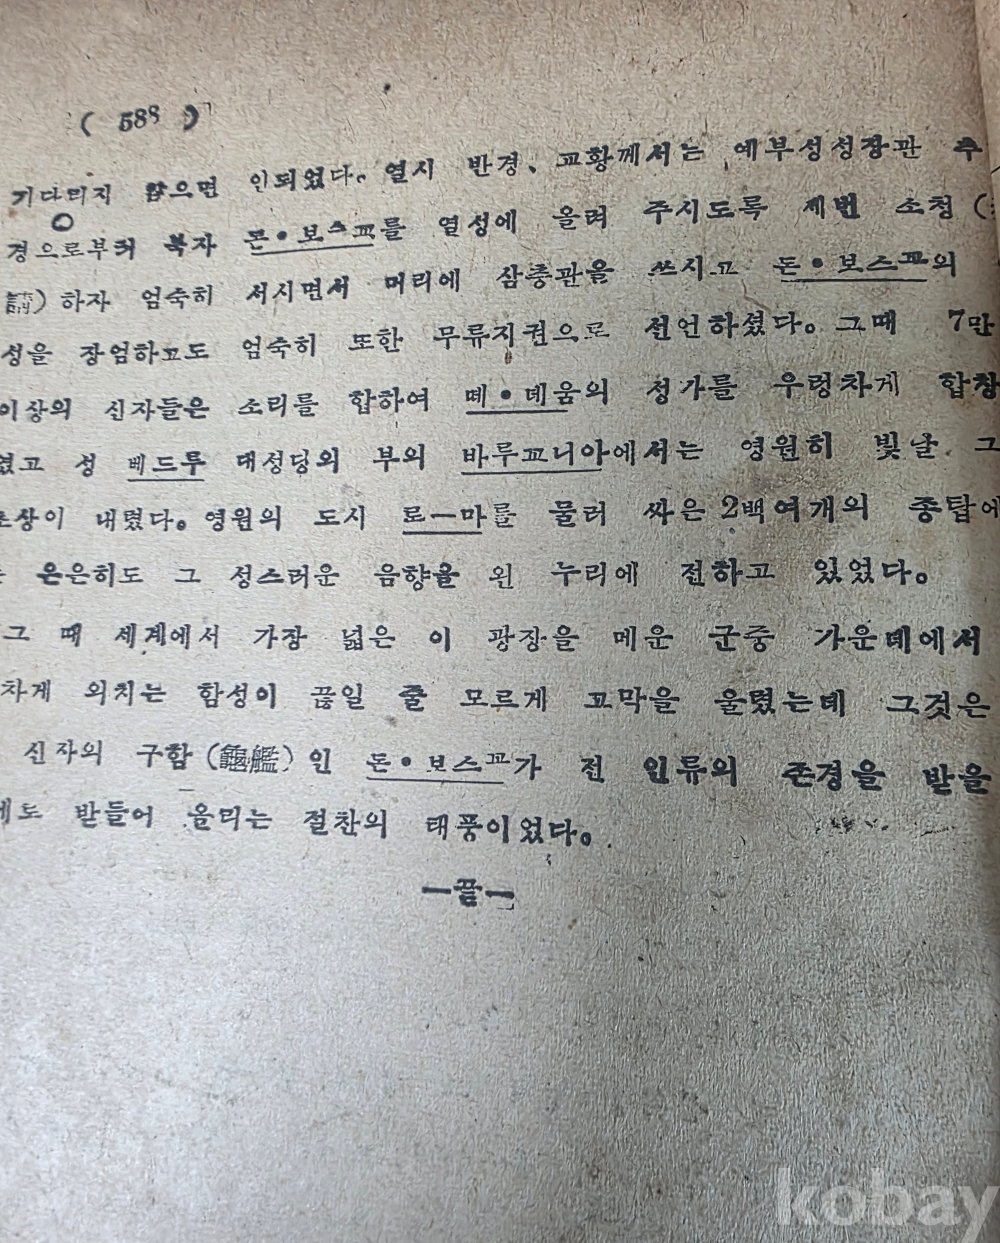 ( 588 )
기다리지 않으면 안되었다。열시 반경、교황께서는 예부성성장관 추
경으로부터 복자 돈·보스꼬를 열성에 올려 주시도록 세번 소청(
하자 엄숙히 서시면서 머리에 삼층관을 쓰시고 돈·보스꼬의
성을 장엄하고도 엄숙히 또한 무류지권으로 선언하셨다。그때 7만
이상의 신자들은 소리를 합하여 떼·데움의 성가를 우렁차게 합창
였고 성 베드루 대성당의 부의 바루꼬니아에서는 영원히 빛날 그
초상이 내렸다。영원의 도시 로ー마를 물러 싸은 2백여개의 종탑에
는 은은히도 그 성스러운 음향을 왼 누리에 전하고 있었다。
그 때 세계에서 가장 넓은 이 광장을 메운 군중 가운데에서
차게 외치는 함성이 끊일 줄 모르게 고막을 울렸는데 그것은
신자의 구함(龜艦)인 돈·보스꼬가 전 인류의 존경을 받을
게도 받들어 올리는 절찬의 태풍이었다。
ー끝ー
kobay